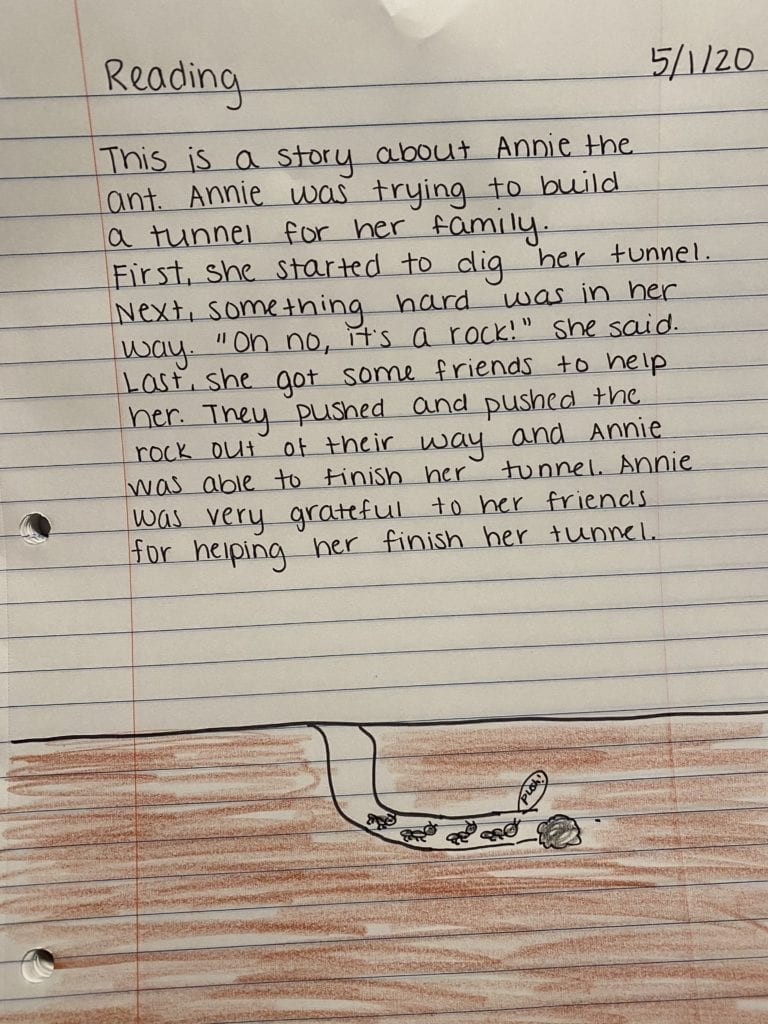 Reading
5/1/20
This is a story about Annie the
ant. Annie was trying to build
a tunnel for her family.
First, she started to dig her tunnel.
Next, something hard was in her
way. "Oh no, it's a rock!" she said.
Last, she got some friends to help
her. They pushed and pushed the
rock out of their way and Annie
was able to finish her tunnel. Annie
was very grateful to her friends
for helping her finish her tunnel.
PUSH!